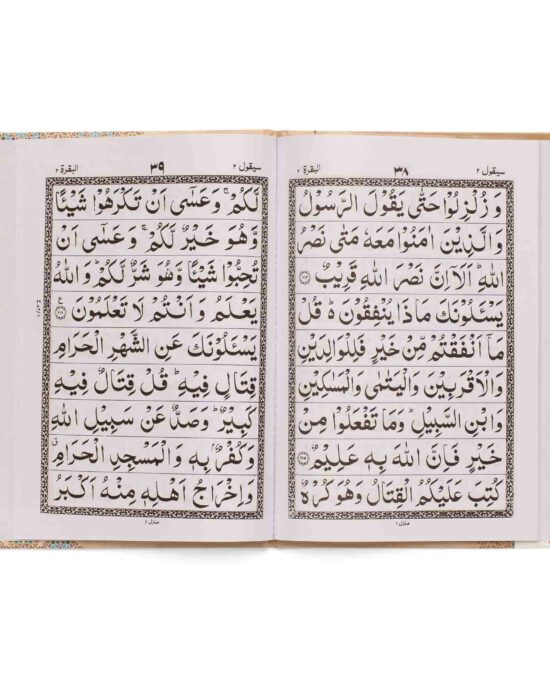 سیقول ۲
۳۸
البقرة ۲
وَ زُلْزِلُوْا حَتّٰى يَقُوْلَ الرَّسُوْلُ
وَالَّذِيْنَ اٰمَنُوْا مَعَهٗ مَتٰى نَصْرُ
اللّٰهِ ؕ اَلَاۤ اِنَّ نَصْرَ اللّٰهِ قَرِيْبٌ
يَسْـَٔلُوْنَكَ مَاذَا يُنْفِقُوْنَ ؕ قُلْ
مَاۤ اَنْفَقْتُمْ مِّنْ خَيْرٍ فَلِلْوَالِدَيْنِ
وَالْاَقْرَبِيْنَ وَالْيَتٰمٰى وَالْمَسٰكِيْنِ
وَابْنِ السَّبِيْلِ ؕ وَمَا تَفْعَلُوْا مِنْ
خَيْرٍ فَاِنَّ اللّٰهَ بِهٖ عَلِيْمٌ
كُتِبَ عَلَيْكُمُ الْقِتَالُ وَهُوَ كُرْهٌ
منزل ۱
سیقول ۲
۳۹
البقرة ۲
لَّكُمْ ۚ وَعَسٰۤى اَنْ تَكْرَهُوْا شَيْـًٔا
وَّهُوَ خَيْرٌ لَّكُمْ ۚ وَعَسٰۤى اَنْ
تُحِبُّوْا شَيْـًٔا وَّهُوَ شَرٌّ لَّكُمْ ؕ وَاللّٰهُ
يَعْلَمُ وَ اَنْتُمْ لَا تَعْلَمُوْنَ
يَسْـَٔلُوْنَكَ عَنِ الشَّهْرِ الْحَرَامِ
قِتَالٍ فِيْهِ ؕ قُلْ قِتَالٌ فِيْهِ
كَبِيْرٌ ؕ وَصَدٌّ عَنْ سَبِيْلِ اللّٰهِ
وَكُفْرٌۢ بِهٖ وَالْمَسْجِدِ الْحَرَامِ
وَاِخْرَاجُ اَهْلِهٖ مِنْهُ اَكْبَرُ
منزل ۱